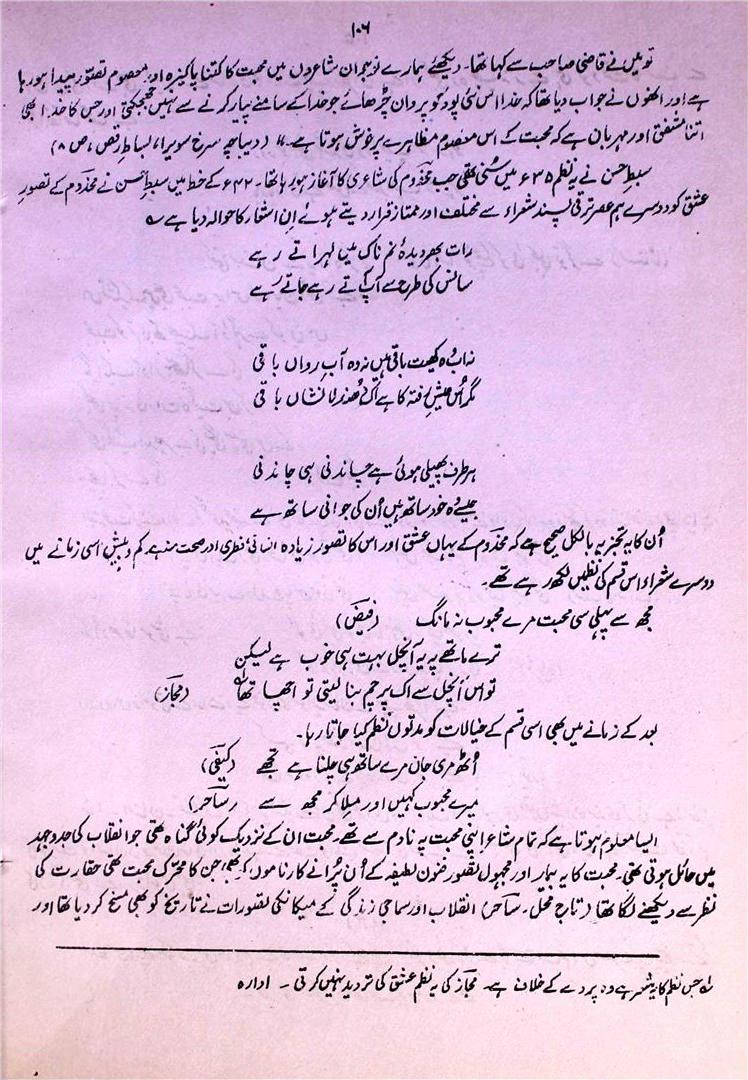 ۱۰۶
تو میں نے قاضی صاحب سے کہا تھا۔ دیکھئے ہمارے نوجوان شاعروں میں محبت کا کتنا پاکیزہ اور معصوم تصوّر پیدا ہو رہا
ہے اور انھوں نے جواب دیا تھا کہ خدا اس نئی پود کو پروان چڑھائے جو خدا کے سامنے پیار کرنے سے نہیں جھجکتی اور جس کا خدا بھی
اتنا مشفق اور مہربان ہے کہ محبت کے اس معصوم مظاہرے پر خوش ہوتا ہے۔“ (دیباچہ سرخ سویرا، بساطِ رقص، ص ۸)
سبطِ حسن نے یہ نظم ۳۵ء میں سُنی تھی جب مخدوم کی شاعری کا آغاز ہو رہا تھا۔ ۴۲ء کے خط میں سبطِ حسن نے مخدوم کے تصورِ
عشق کو دوسرے ہم عصر ترقی پسند شعراء سے مختلف اور ممتاز قرار دیتے ہوئے اِن اشعار کا حوالہ دیا ہے ؎
رات بھر دیدۂ نم ناک میں لہراتے رہے
سانس کی طرح سے آپ آتے رہے جاتے رہے
نہ اب وہ کھیت باقی ہیں نہ وہ آبِ رواں باقی
مگر اُس عیشِ رفتہ کا ہے اک دُھندلا نشاں باقی
ہر طرف پھیلی ہوئی ہے چاندنی ہی چاندنی
جیسے وہ خود ساتھ ہیں اُن کی جوانی ساتھ ہے
اُن کا یہ تجزیہ بالکل صحیح ہے کہ مخدوم کے یہاں عشق اور اس کا تصور زیادہ انسانی، فطری اور صحت مند ہے۔ کم و بیش اسی زمانے میں
دوسرے شعراء اس قسم کی نظمیں لکھ رہے تھے۔
مجھ سے پہلی سی محبت مرے محبوب نہ مانگ (فیضؔ)
ترے ماتھے پہ یہ آنچل بہت ہی خوب ہے لیکن
تو اس آنچل سے اک پرچم بنا لیتی تو اچھا تھا؂۱ (مجازؔ)
بعد کے زمانے میں بھی اسی قسم کے خیالات کو مدتوں نظم کیا جاتا رہا۔
اُٹھ مری جان مرے ساتھ ہی چلنا ہے تجھے (کیفیؔ)
میرے محبوب کہیں اور ملا کر مجھ سے (ساحرؔ)
ایسا معلوم ہوتا ہے کہ تمام شاعر اپنی محبت پہ نادم سے تھے۔ محبت ان کے نزدیک کوئی گناہ تھی جو انقلاب کی جدوجہد
میں حائل ہوتی تھی۔ محبت کا یہ بیمار اور مجہول تصوّر فنونِ لطیفہ کے اُن پُرانے کارناموں کو بھی جن کا محرّک محبت تھی حقارت کی
نظر سے دیکھنے لگا تھا (تاج محل۔ ساحر) انقلاب اور سماجی زندگی کے میکانکی تصورات نے تاریخ کو بھی مسخ کر دیا تھا اور
؂۱ جس نظم کا یہ شعر ہے وہ پردے کے خلاف ہے۔ مجازؔ کی یہ نظم عشق کی تردید نہیں کرتی۔ ادارہ